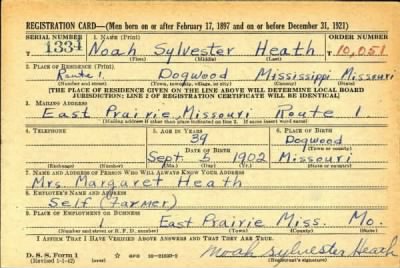 REGISTRATION CARD—(Men born on or after February 17, 1897 and on or before December 31, 1921)
SERIAL NUMBER 1. NAME (Print) ORDER NUMBER
T 1334 Noah Sylvester Heath T 10,051
(First) (Middle) (Last)
2. PLACE OF RESIDENCE (Print)
Route 1 Dogwood Mississippi Missouri
(Number and street) (Town, township, village, or city) (County) (State)
[THE PLACE OF RESIDENCE GIVEN ON THE LINE ABOVE WILL DETERMINE LOCAL BOARD
JURISDICTION; LINE 2 OF REGISTRATION CERTIFICATE WILL BE IDENTICAL]
3. MAILING ADDRESS
East Prairie, Missouri Route 1
[Mailing address if other than place indicated on line 2. If same insert word same]
4. TELEPHONE 5. AGE IN YEARS 6. PLACE OF BIRTH
39 Dogwood
DATE OF BIRTH (Town or county)
Sept 5 1902 Missouri
(Exchange) (Number) (Mo.) (Day) (Yr.) (State or country)
7. NAME AND ADDRESS OF PERSON WHO WILL ALWAYS KNOW YOUR ADDRESS
Mrs. Margaret Heath
8. EMPLOYER'S NAME AND ADDRESS
Self (Farmer)
9. PLACE OF EMPLOYMENT OR BUSINESS
1 East Prairie Miss. Mo.
(Number and street or R. F. D. number) (Town) (County) (State)
I AFFIRM THAT I HAVE VERIFIED ABOVE ANSWERS AND THAT THEY ARE TRUE.
D. S. S. Form 1
(Revised 1-1-42) (over) Noah Sylvester Heath